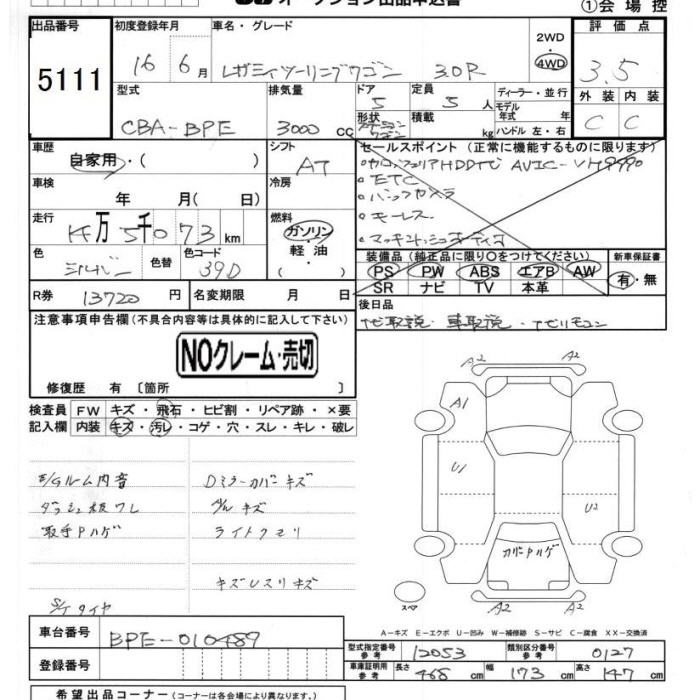 ①会 場 控
出品番号
5111
初度登録年月
16 6月
車名・グレード
レガシィツーリングワゴン 3.0R
2WD
4WD
評 価 点
3.5
外 装 内 装
C C
型式
CBA-BPE
排気量
3000 cc
ドア
5
定員
5 人
形状
積載
kg
ディーラー・並行
モデル
年式 年
ハンドル 左・右
車歴
自家用・( )
シフト
AT
セールスポイント (正常に機能するものに限ります)
HDDナビ AVIC-VH9990
・ETC
・バックカメラ
・キーレス
・マッキントッシュオーディオ
車検
年 月( 日)
冷房
走行
14万5千073km
燃料
ガソリン
軽・油
色
シルバー
色替
色コード
39D
装備品(純正品に限り〇をつけてください)
PS PW ABS エアB AW
SR ナビ TV 本革
新車保証書
有・無
R券 13720 円
名変期限 月 日
後日品
ナビ取説・車取説・ナビリモコン
注意事項申告欄(不具合内容等は具体的に記入して下さい)
NOクレーム・売切
修復歴 有 〔箇所 〕
検査員 FW キズ・飛石・ヒビ割・リペア跡・×要
記入欄 内装 キズ・汚レ・コゲ・穴・スレ・キレ・破レ
E/Gルーム内音
Dミラーカバーキズ
ダッシュ板ワレ
A/Wキズ
取手Pハゲ
ライトクモリ
キズUスリキズ
S/Tタイヤ
A2 A2
A1
U1
U2
カバーPハゲ
A2 A2
スペア
A-キズ E-エクボ U-凹み W-補修跡 S-サビ C-腐食 XX-交換済
車台番号
BPE-010489
登録番号
型式指定番号
参考
12053
類別区分番号
参考
0127
車庫証明用
参考
長さ 468 cm
幅 173 cm
高さ 147 cm
希望出品コーナー(コーナーは各会場により異なります。)